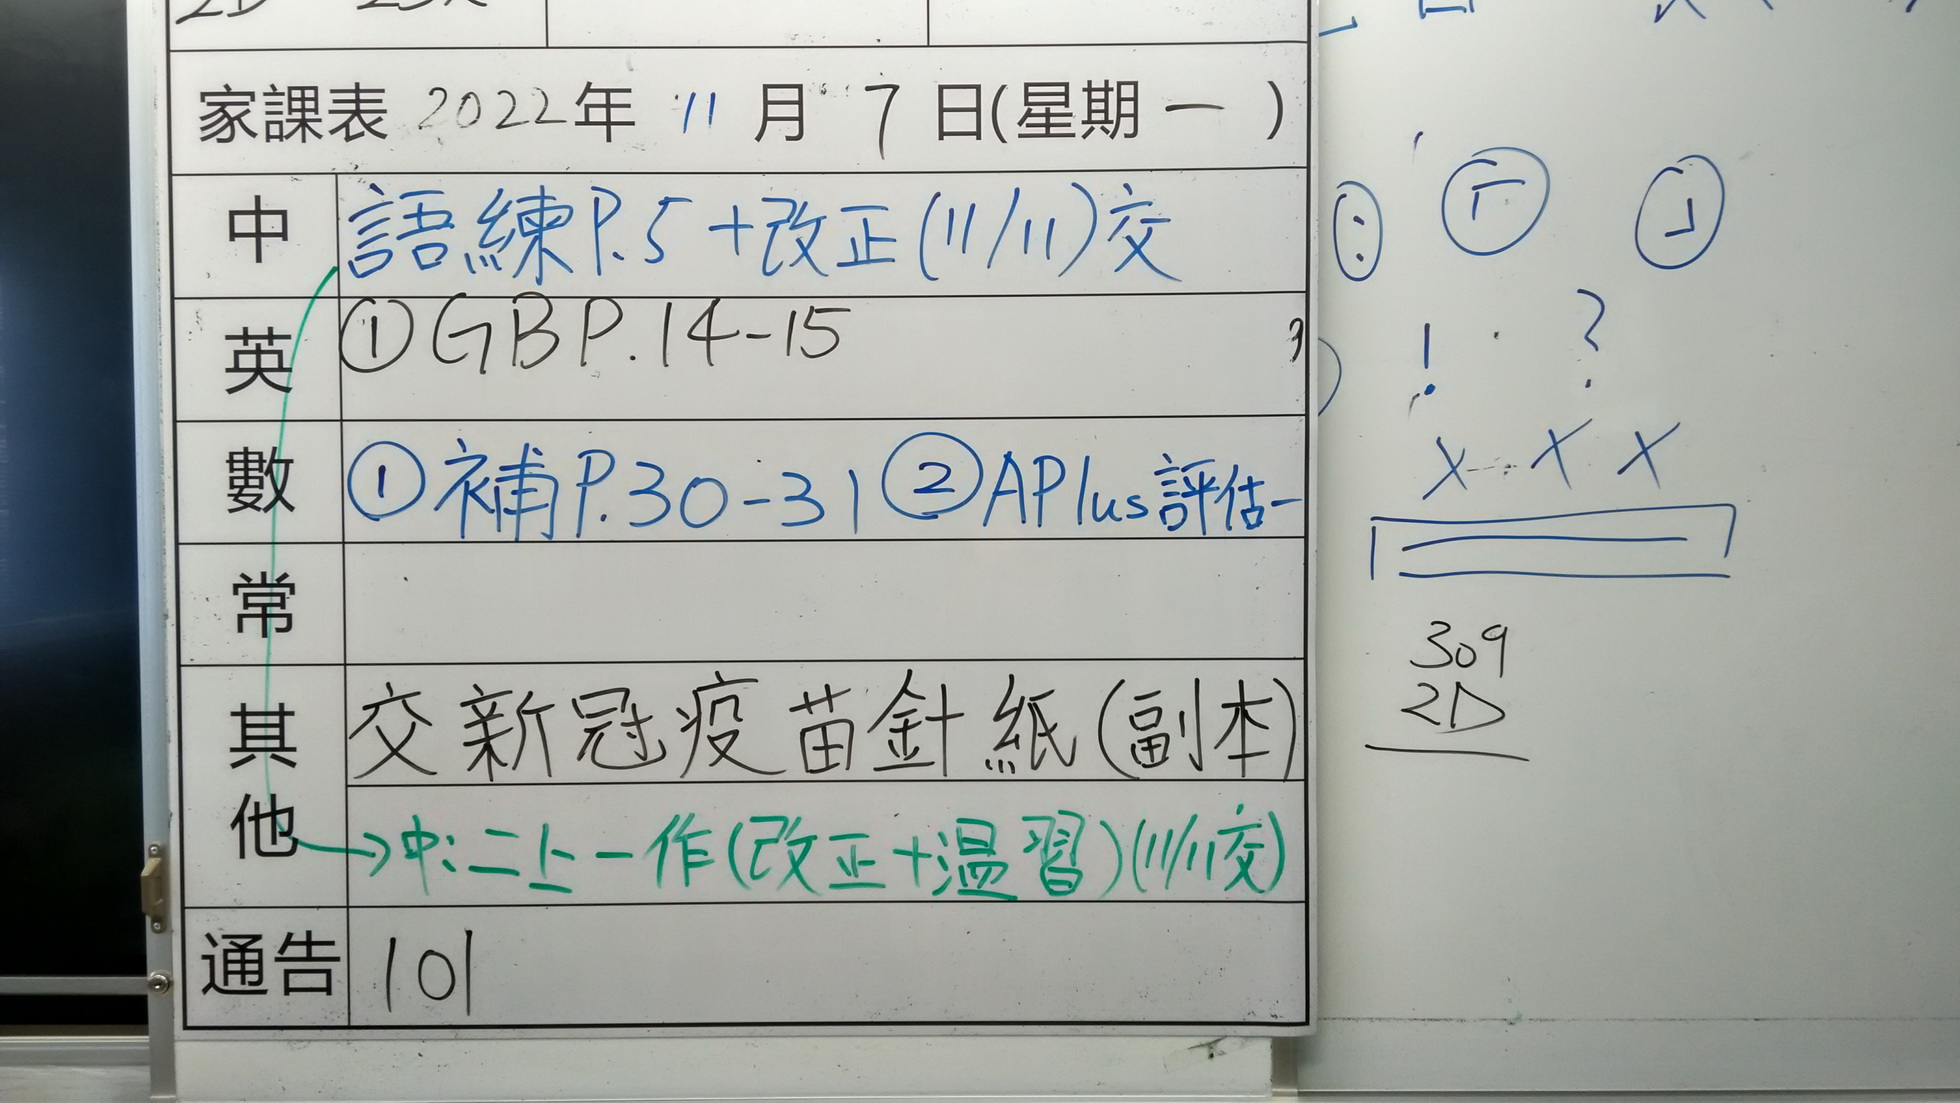 家課表 2022年 11 月 7 日(星期 一 )
中 語練P.5+改正(11/11)交
英 ①GBP.14-15
數 ①補P.30-31 ②APlus評估一
常
其他 交新冠疫苗針紙(副本)
→中:二上一作(改正+溫習)(11/11交)
通告 101
: 「 」
! ?
X X X
309
2D